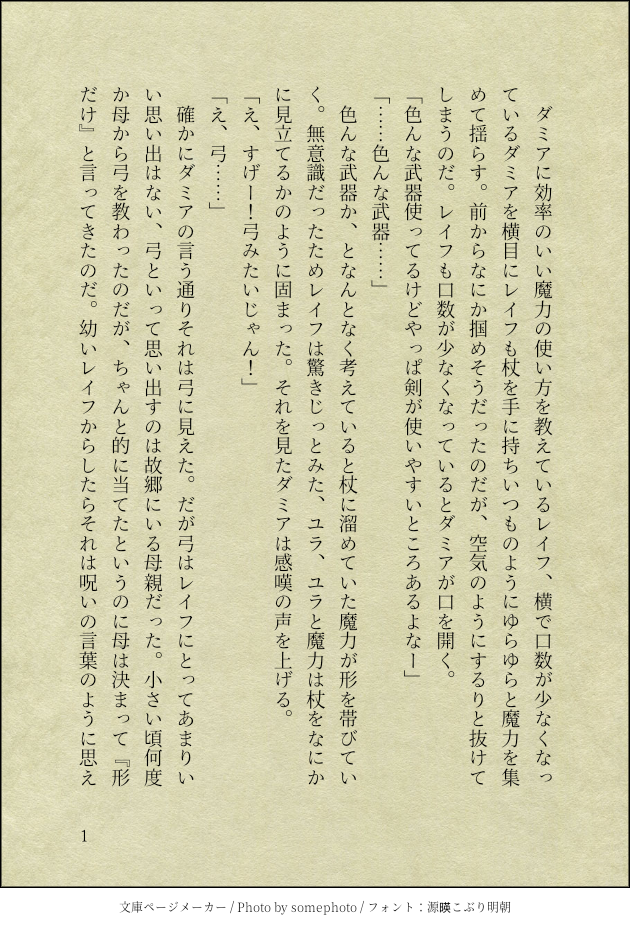 ダミアに効率のいい魔力の使い方を教えているレイフ、横で口数が少なくなっ
ているダミアを横目にレイフも杖を手に持ちいつものようにゆらゆらと魔力を集
めて揺らす。前からなにか掴めそうだったのだが、空気のようにするりと抜けて
しまうのだ。レイフも口数が少なくなっているとダミアが口を開く。
「色んな武器使ってるけどやっぱ剣が使いやすいところあるよなー」
「……色んな武器……」
　色んな武器か、となんとなく考えていると杖に溜めていた魔力が形を帯びてい
く。無意識だったためレイフは驚きじっとみた、ユラ、ユラと魔力は杖をなにか
に見立てるかのように固まった。それを見たダミアは感嘆の声を上げる。
「え、すげー！弓みたいじゃん！」
「え、弓……」
　確かにダミアの言う通りそれは弓に見えた。だが弓はレイフにとってあまりい
い思い出はない、弓といって思い出すのは故郷にいる母親だった。小さい頃何度
か母から弓を教わったのだが、ちゃんと的に当てたというのに母は決まって『形
だけ』と言ってきたのだ。幼いレイフからしたらそれは呪いの言葉のように思え
1
文庫ページメーカー / Photo by somephoto / フォント：源暎こぶり明朝